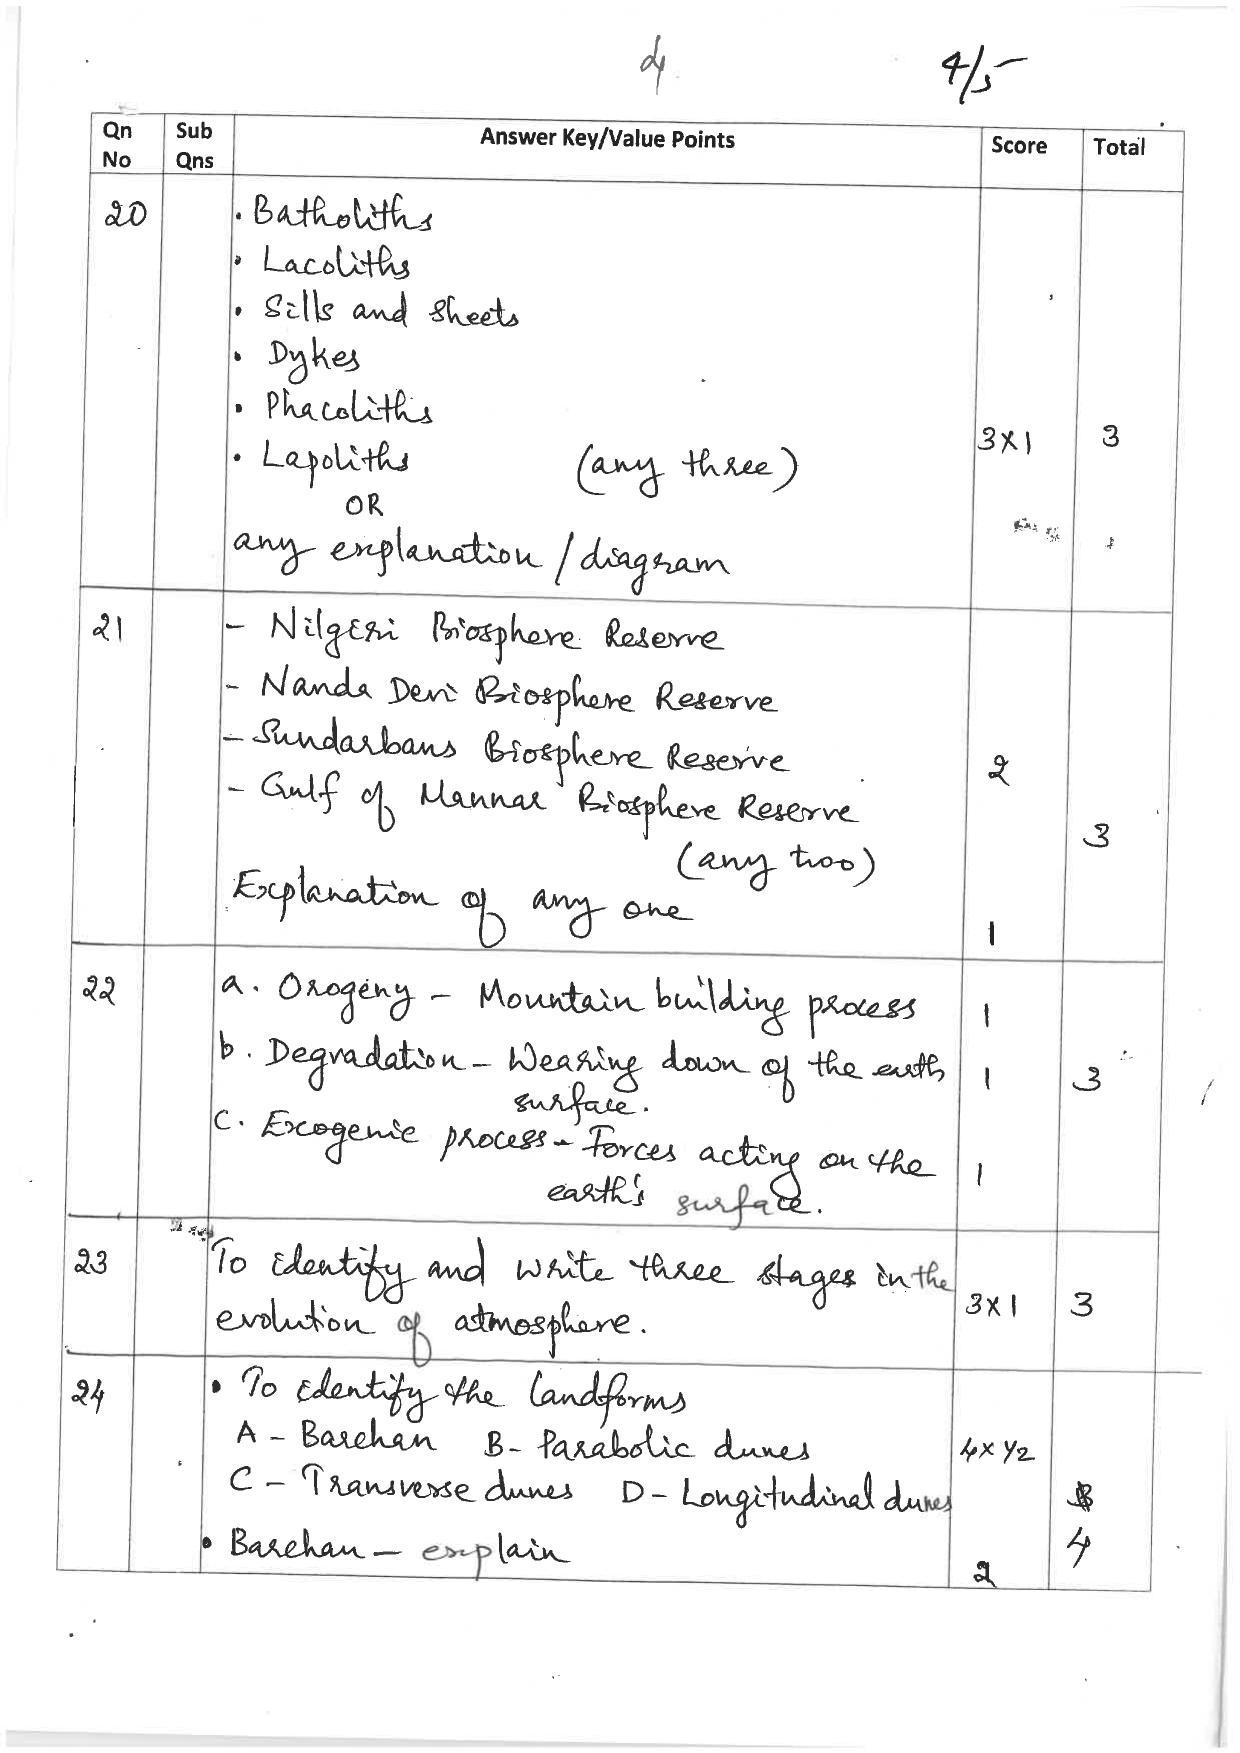 4
4/5
Qn No | Sub Qns | Answer Key/Value Points | Score | Total
20
• Batholiths
• Lacoliths
• Sills and sheets
• Dykes
• Phacoliths
• Lapoliths (any three) 3x1 3
OR
any explanation / diagram
21
- Nilgiri Biosphere Reserve
- Nanda Devi Biosphere Reserve
- Sundarbans Biosphere Reserve 2
- Gulf of Mannar Biosphere Reserve
(any two) 3
Explanation of any one 1
22
a. Orogeny - Mountain building process 1
b. Degradation - Wearing down of the earth 1 3
surface.
c. Exogenic process - Forces acting on the 1
earth's surface.
23
To identify and write three stages in the
evolution of atmosphere. 3x1 3
24
• To identify the landforms
A - Barchan B - Parabolic dunes 4x 1/2
C - Transverse dunes D - Longitudinal dunes
• Barchan - explain 2 4